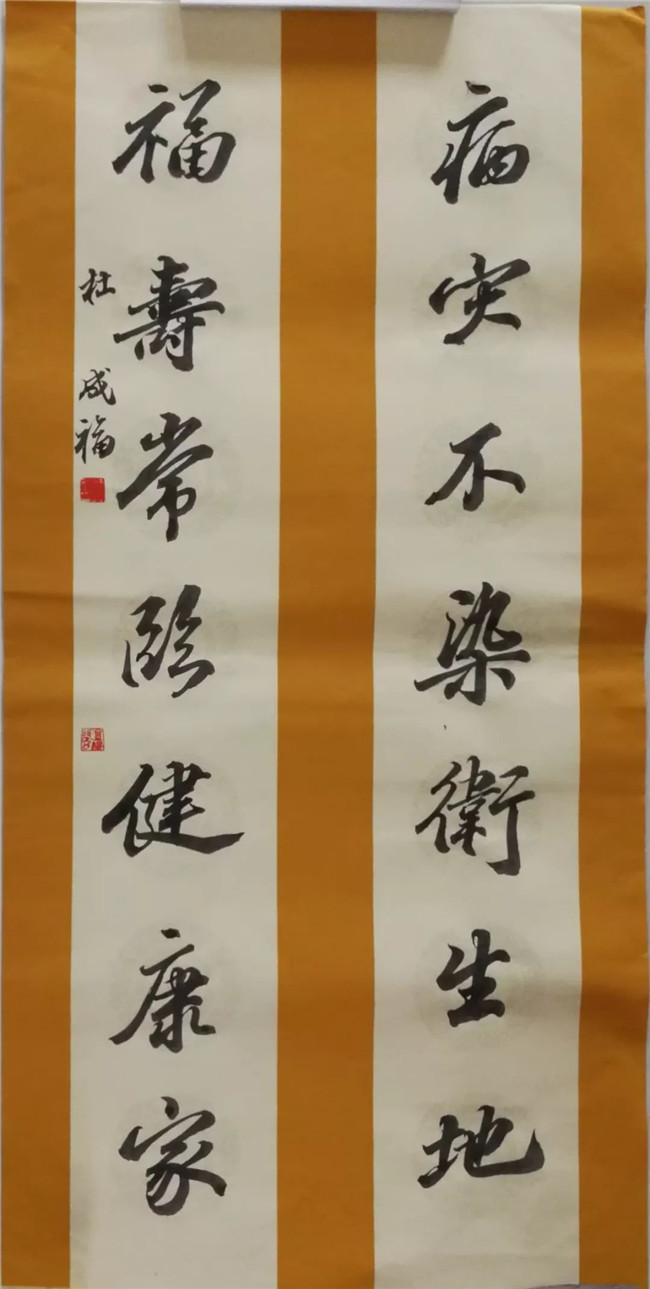 病灾不染衛生地
福壽常临健康家
杜成福